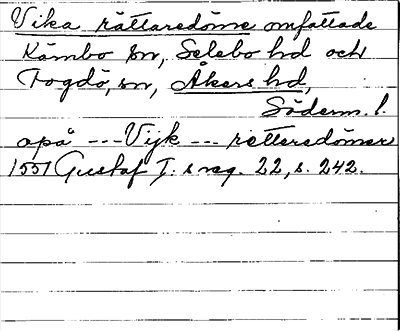 Vika rättaredöme omfattade
Kärnbo sn, Selebo hd och
Fogdö, sn, Åkers hd,
Söderm. l.
opå --- Vijk --- retteredömer
1551 Gustaf I:s reg. 22, s. 242.